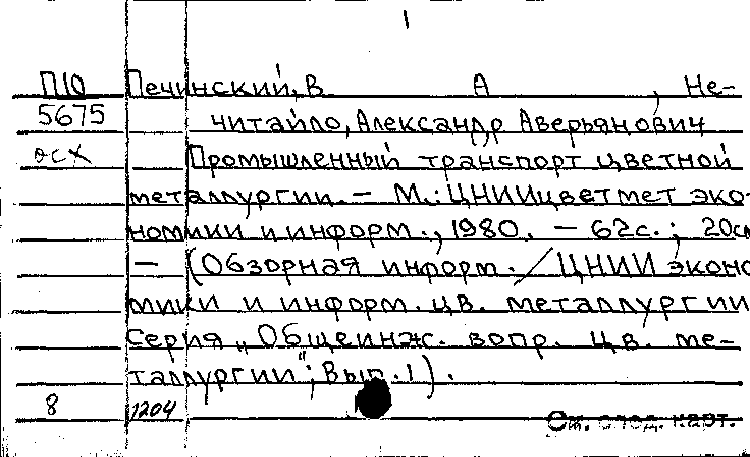 1
П10 Печинский, В А , Не-
5675 читайло, Александр Аверьянович
осх Промышленный транспорт цветной
металлургии. – М.: ЦНИИцветмет эко-
номики и информ., 1980. – 62с.; 20см
– (Обзорная информ. / ЦНИИ эконо
мики и информ. цв. металлургии
Серия „Общеинж. вопр. цв. ме-
таллургии"; Вып. 1).
8 1204
См. след. карт.